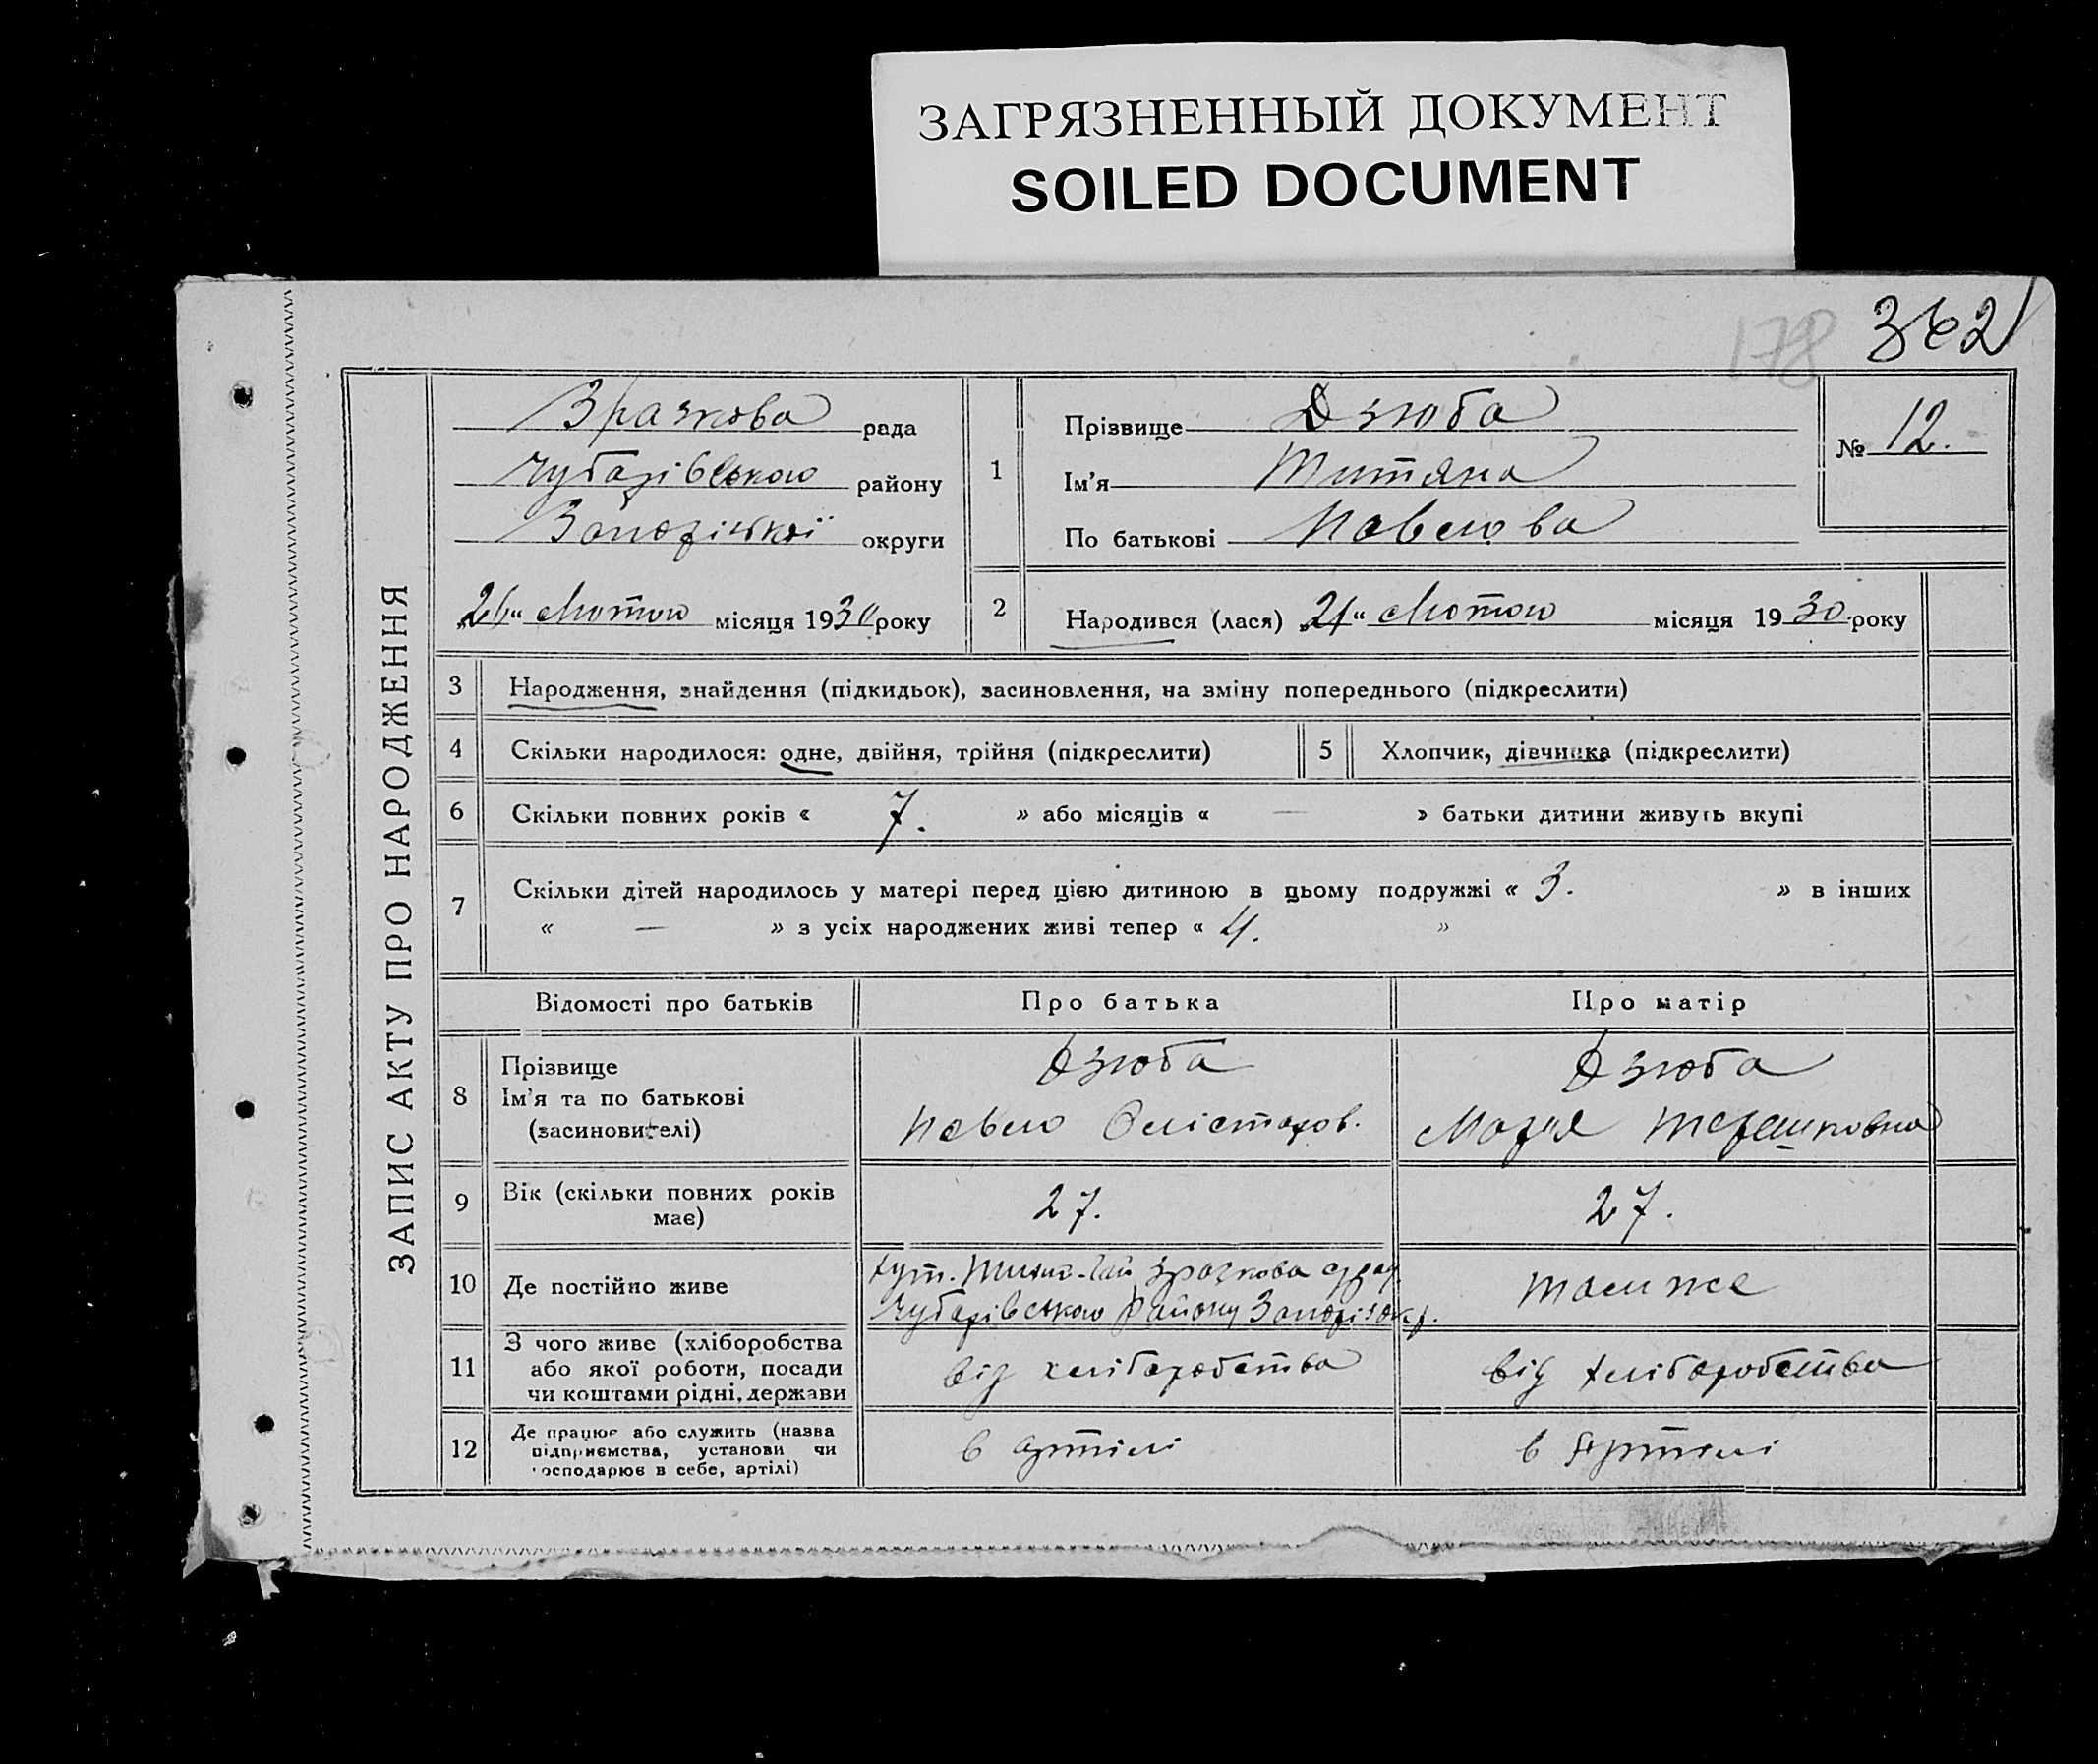 ЗАГРЯЗНЕННЫЙ ДОКУМЕНТ
SOILED DOCUMENT
178 362
ЗАПИС АКТУ ПРО НАРОДЖЕННЯ
Зразкова рада
Чубарівського району
Запорізької округи
„26“ Лютого місяця 1930 року
1
Прізвище Дзюба
Ім'я Титяна
По батькові Павлова
№ 12.
2 Народився (лася) „21“ Лютого місяця 1930 року
3 Народження, знайдення (підкидьок), засиновлення, на зміну попереднього (підкреслити)
4 Скільки народилося: одне, двійня, трійня (підкреслити) 5 Хлопчик, дівчинка (підкреслити)
6 Скільки повних років « 7. » або місяців « — » батьки дитини живуть вкупі
7 Скільки дітей народилось у матері перед цією дитиною в цьому подружжі « 3. » в інших
« — » з усіх народжених живі тепер « 4. »
Відомості про батьків Про батька Про матір
8 Прізвище
Ім'я та по батькові
(засиновителі)
Дзюба
Павло Олістархов.
Дзюба
Марія Терешковна
9 Вік (скільки повних років
має)
27. 27.
10 Де постійно живе
хут. Зразкова
Чубарівського Району Запоріз окр.
таки же
11 З чого живе (хліборобства
або якої роботи, посади
чи коштами рідні, держави
від хліборобства від хліборобства
12 Де працює або служить (назва
підприємства, установи чи
господарює в себе, артілі)
в артілі в Артілі